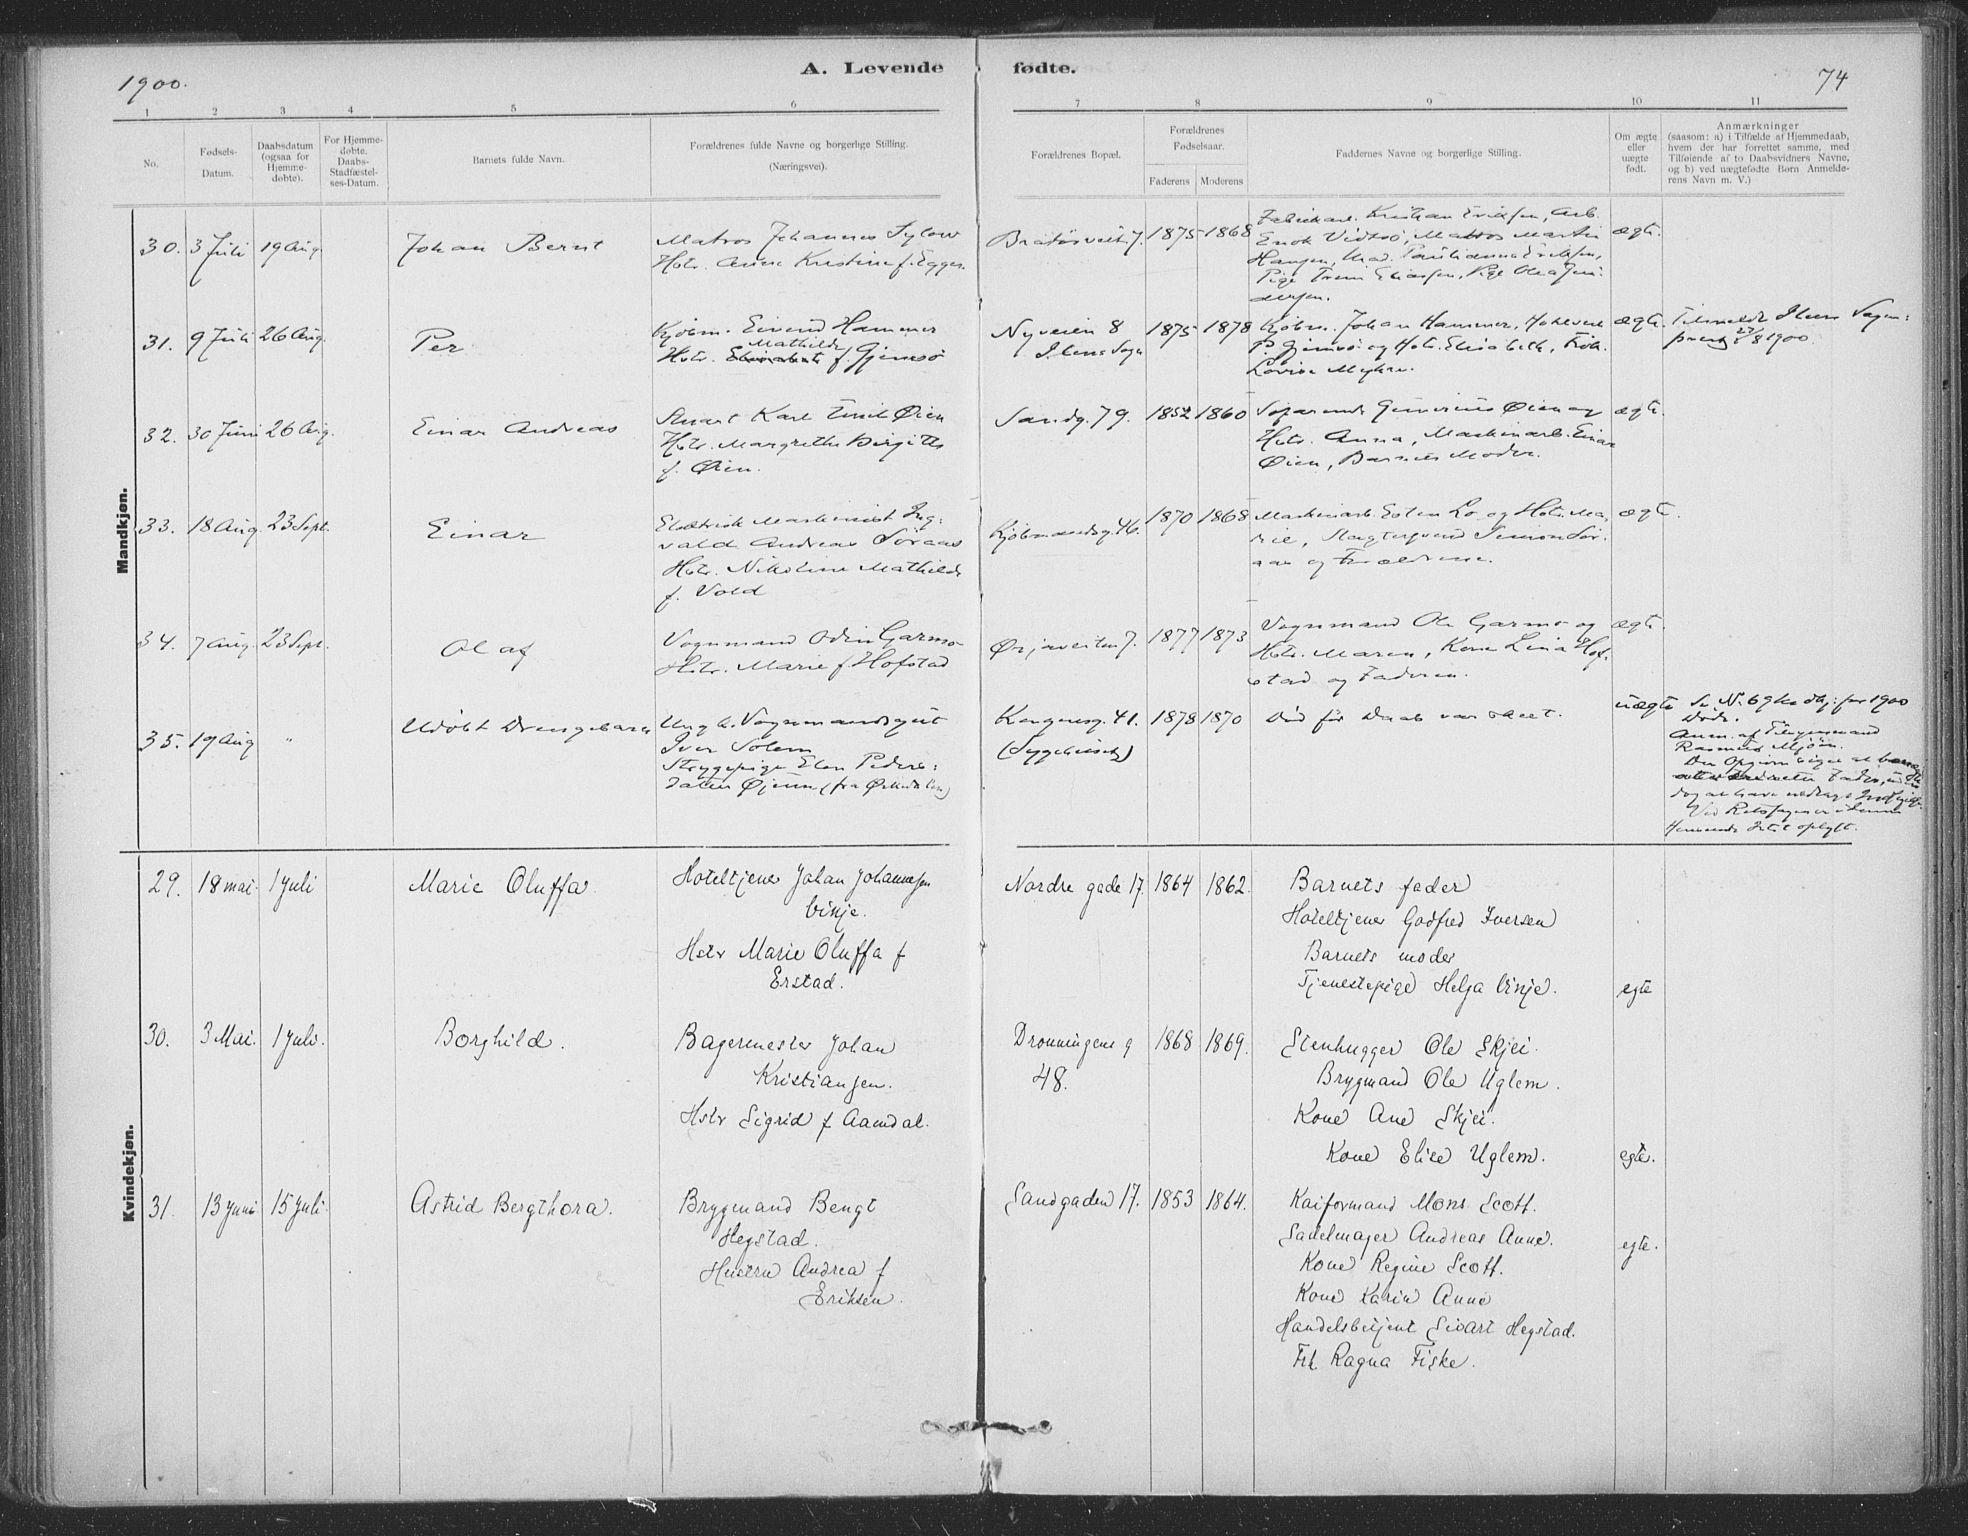 1900.
A. Levende fødte.
74
1 2 3 4 5 6 7 8 9 10 11
No.
Fødsels-
Datum.
Daabsdatum
(ogsaa for
Hjemme-
døbte).
For Hjemme-
døbte.
Daabs-
Stadfæstel-
ses-Datum.
Barnets fulde Navn.
Forældrenes fulde Navne og borgerlige Stilling.
(Næringsvei).
Forældrenes Bopæl.
Forældrenes
Fødselsaar.
Faderens Moderens
Faddernes Navne og borgerlige Stilling.
Om ægte
eller
uægte
født.
Anmærkninger
(saasom: a) i Tilfælde af Hjemmedaab,
hvem der har forrettet samme, med
Tilføiende af to Daabsvidners Navne,
og b) ved uægtefødte Børn Anmelde-
rens Navn m. V.)
Mandkjøn.
30. 3 Juli 19 Aug.
Johan Bernt
Matros Johannes Sylow
Hstr. Anne Kristine f. Egger.
Bratørveit. 7.
1875 1868
Fabrikarb. Kristian Eriksen, Arb.
Enok Vidtsø, Matros Martin
Hansen, Mad. Pauliana Eriksen,
Pige Trine Eliassen, Pige Olea Gun-
dersen.
ægte.
31. 9 Juli 26 Aug.
Per
Kjøbm. Eivind Hammer
Mathilde
Hstr. Elisabeth f. Gjemsø
Nyveien 8
Ilens Sogn
1875 1878
Kjøbm. Johan Hammer,
P. Gjemsø og Hstr. Elisabeth, Frøk.
Lovise Myhre.
ægte.
Tilmeldt Ilens Sogne-
præst 27/8 1900.
32. 30 Juni 26 Aug.
Einar Andreas
Stuart Karl Emil Øien
Hstr. Margrethe Birgitte
f. Øien.
Sandg. 79.
1852 1860
Søfarende Øien og
Hstr. Anna, Maskinarb. Einar
Øien, Barnets Moder.
ægte.
33. 18 Aug. 23 Sept.
Einar
Elektrisk Maskinist Ing-
vald Andreas Søraas
Hstr. Nikoline Mathilde
f. Vold
Kjøbmandsg. 46.
1870 1868
Maskinarb. Esten Lo og Hstr. Ma-
rie, Slagtersvend Simon Sør-
aas og Forældrene.
ægte.
34. 7 Aug. 23 Sept.
Olaf
Vognmand Odin Garmo
Hstr. Marie f. Hofstad
Ørjaveiten 7.
1877 1873
Vognmand Ole Garmo og
Hstr. Maren, Kone Lina Hof-
stad og Faderen.
ægte.
35. 19 Aug "
Udøbt Drengebarn
Ungk. Vognmandsgut
Iver Solem
Strygepige Elen Peders-
datter Øjum (fra Ørkedalen)
Kongensg. 41.
(Sygehuset)
1878 1870
Død før Daab var skeet.
uægte
Se N. 69 for 1900
Døde.
Anm. af
Rasmus Mjøen.
Kvindekjøn.
29. 18 mai. 1 juli
Marie Oluffa.
Hoteltjener Johan Johannesen
Vinje.
Hstr Marie Oluffa f
Erstad.
Nordre gade 17.
1864 1862.
Barnets fader
Hoteltjener Godfred Iversen
Barnets moder
Tjenestepige Helga Vinje.
egte
30. 3 Mai. 1 juli.
Borghild.
Bagermester Johan
Kristiansen.
Hstr Sigrid f Aamdal.
Dronningens g
48.
1868 1869.
Stenhugger Ole Skjei.
Brygmand Ole Uglem.
Kone Ane Skjei.
Kone Elise Uglem.
egte.
31. 13 juni 15 juli.
Astrid Bergthora.
Brygmand Bengt
Hegstad.
Hustru Andrea f
Eriksen.
Sandgaden 17.
1853 1864.
Kaiformand Mons Scott.
Sadelmager Andreas Anne.
Kone Regine Scott.
Kone Karin Anne
Handelsbetjent Sivart Hegstad.
Frk. Ragna Fiske.
egte.